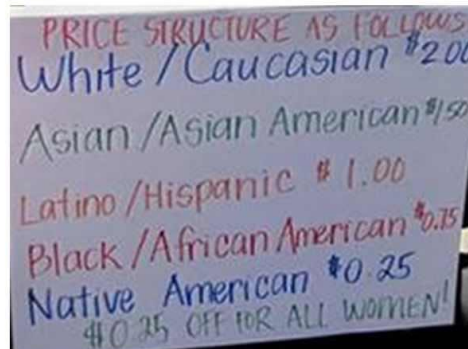 PRICE STRUCTURE AS FOLLOWS
White / Caucasian $2.00
Asian / Asian American $1.50
Latino / Hispanic $1.00
Black / African American $0.75
Native American $0.25
$0.25 OFF FOR ALL WOMEN!